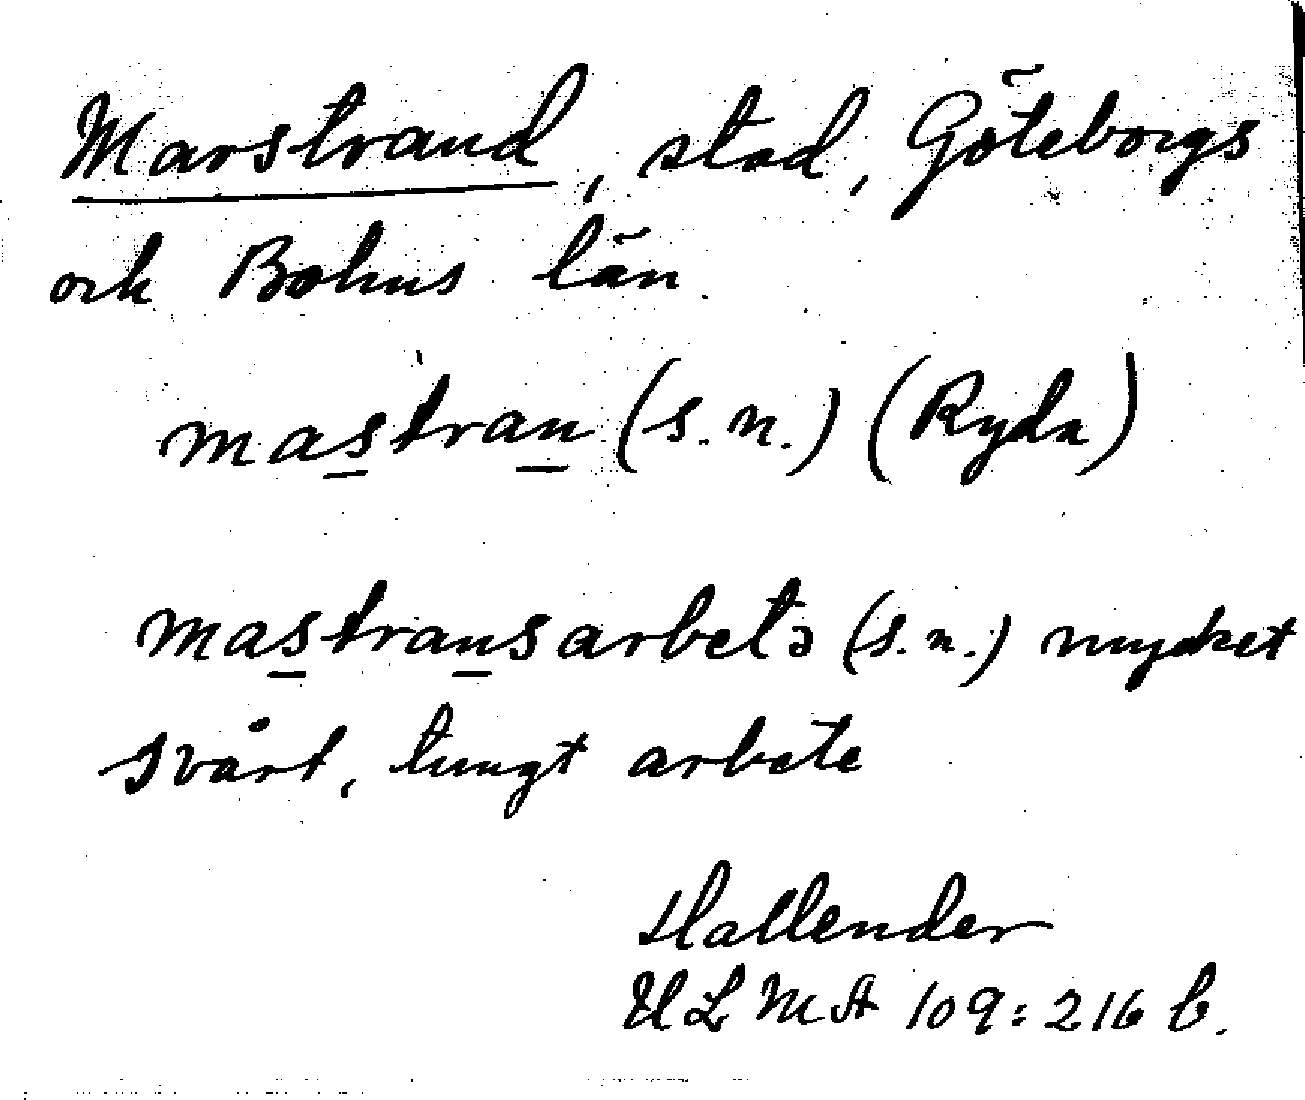 Marstrand, stad, Göteborgs
och Bohus län
mastran (s.n.) (Ryda)
mastransarbetə (s.n.) mycket
svårt, tungt arbete
Hallender
ULMA 109:216 b.